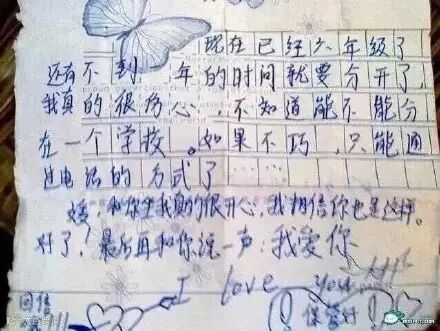 现在已经六年级了
还有不到 年的时间就要分开了，
我真的很伤心，不知道能不能分
在一个学校。如果不巧，只能通
过电话的方式了……
媛，和你坐我真的很开心，我相信你也是这样。
好了，最后再和你说一声：我爱你
I love you
回信
保管好